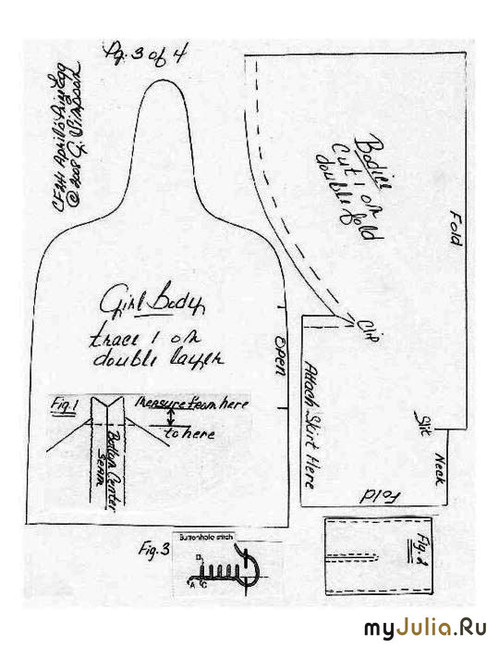 Pg. 3 of 4
CF244 April's Prize Egg
© 2008 G. Simpson
Bodice
Cut 1 on
double fold
Fold
Girl Body
trace 1 on
double layer
open
Clip
Attach Skirt Here
Slit
Neck
Fold
Fig.1
Measure from here
to here
Bottom Center
Seam
Fig. 3
Buttonhole stitch
B
A C
Fig. 2
myJulia.Ru